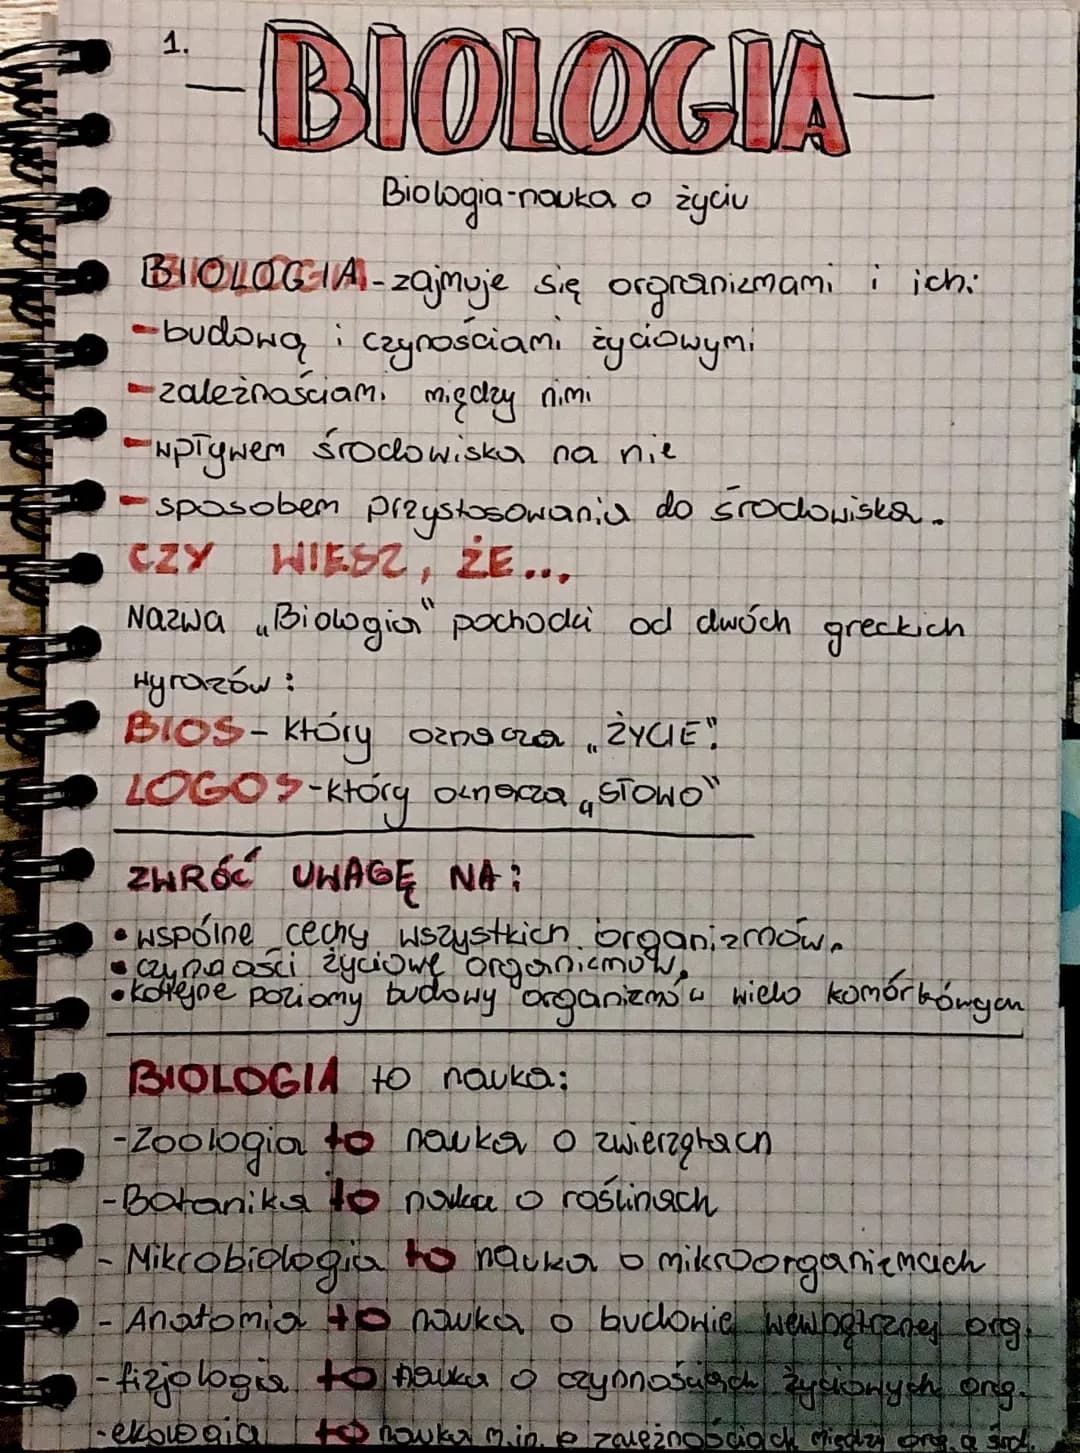 1.
BIOLOGIA
Biologia-nauka o życiu
BIOLOGIA-zajmuje się orgranizmami i ich:
-budową i czynościami życiowymi
-zależnościami między nimi
-wpływem środowiska na nie
-sposobem przystosowania do środowiska.
CZY WIESZ, ŻE...
Nazwa „Biologia" pochodzi od dwóch greckich
wyrazów:
BIOS- który oznacza „ŻYCIE".
LOGOS-który oznacza „SŁOWO"
ZWRÓĆ UWAGĘ NA:
•wspólne cechy wszystkich organizmów.
•czynności życiowe organizmów.
•kolejne poziomy budowy organizmów wielo komórkowych
BIOLOGIA to nauka:
-Zoologia to nauka o zwierzętach
-Botanika to nauka o roślinach
-Mikrobiologia to nauka o mikroorganizmach
-Anatomia to nauka o budowie wewnętrznej org.
-fizjologia to nauka o czynnościach życiowych org.
-ekologia to nauka m.in. o zależnościach między org. a środ.